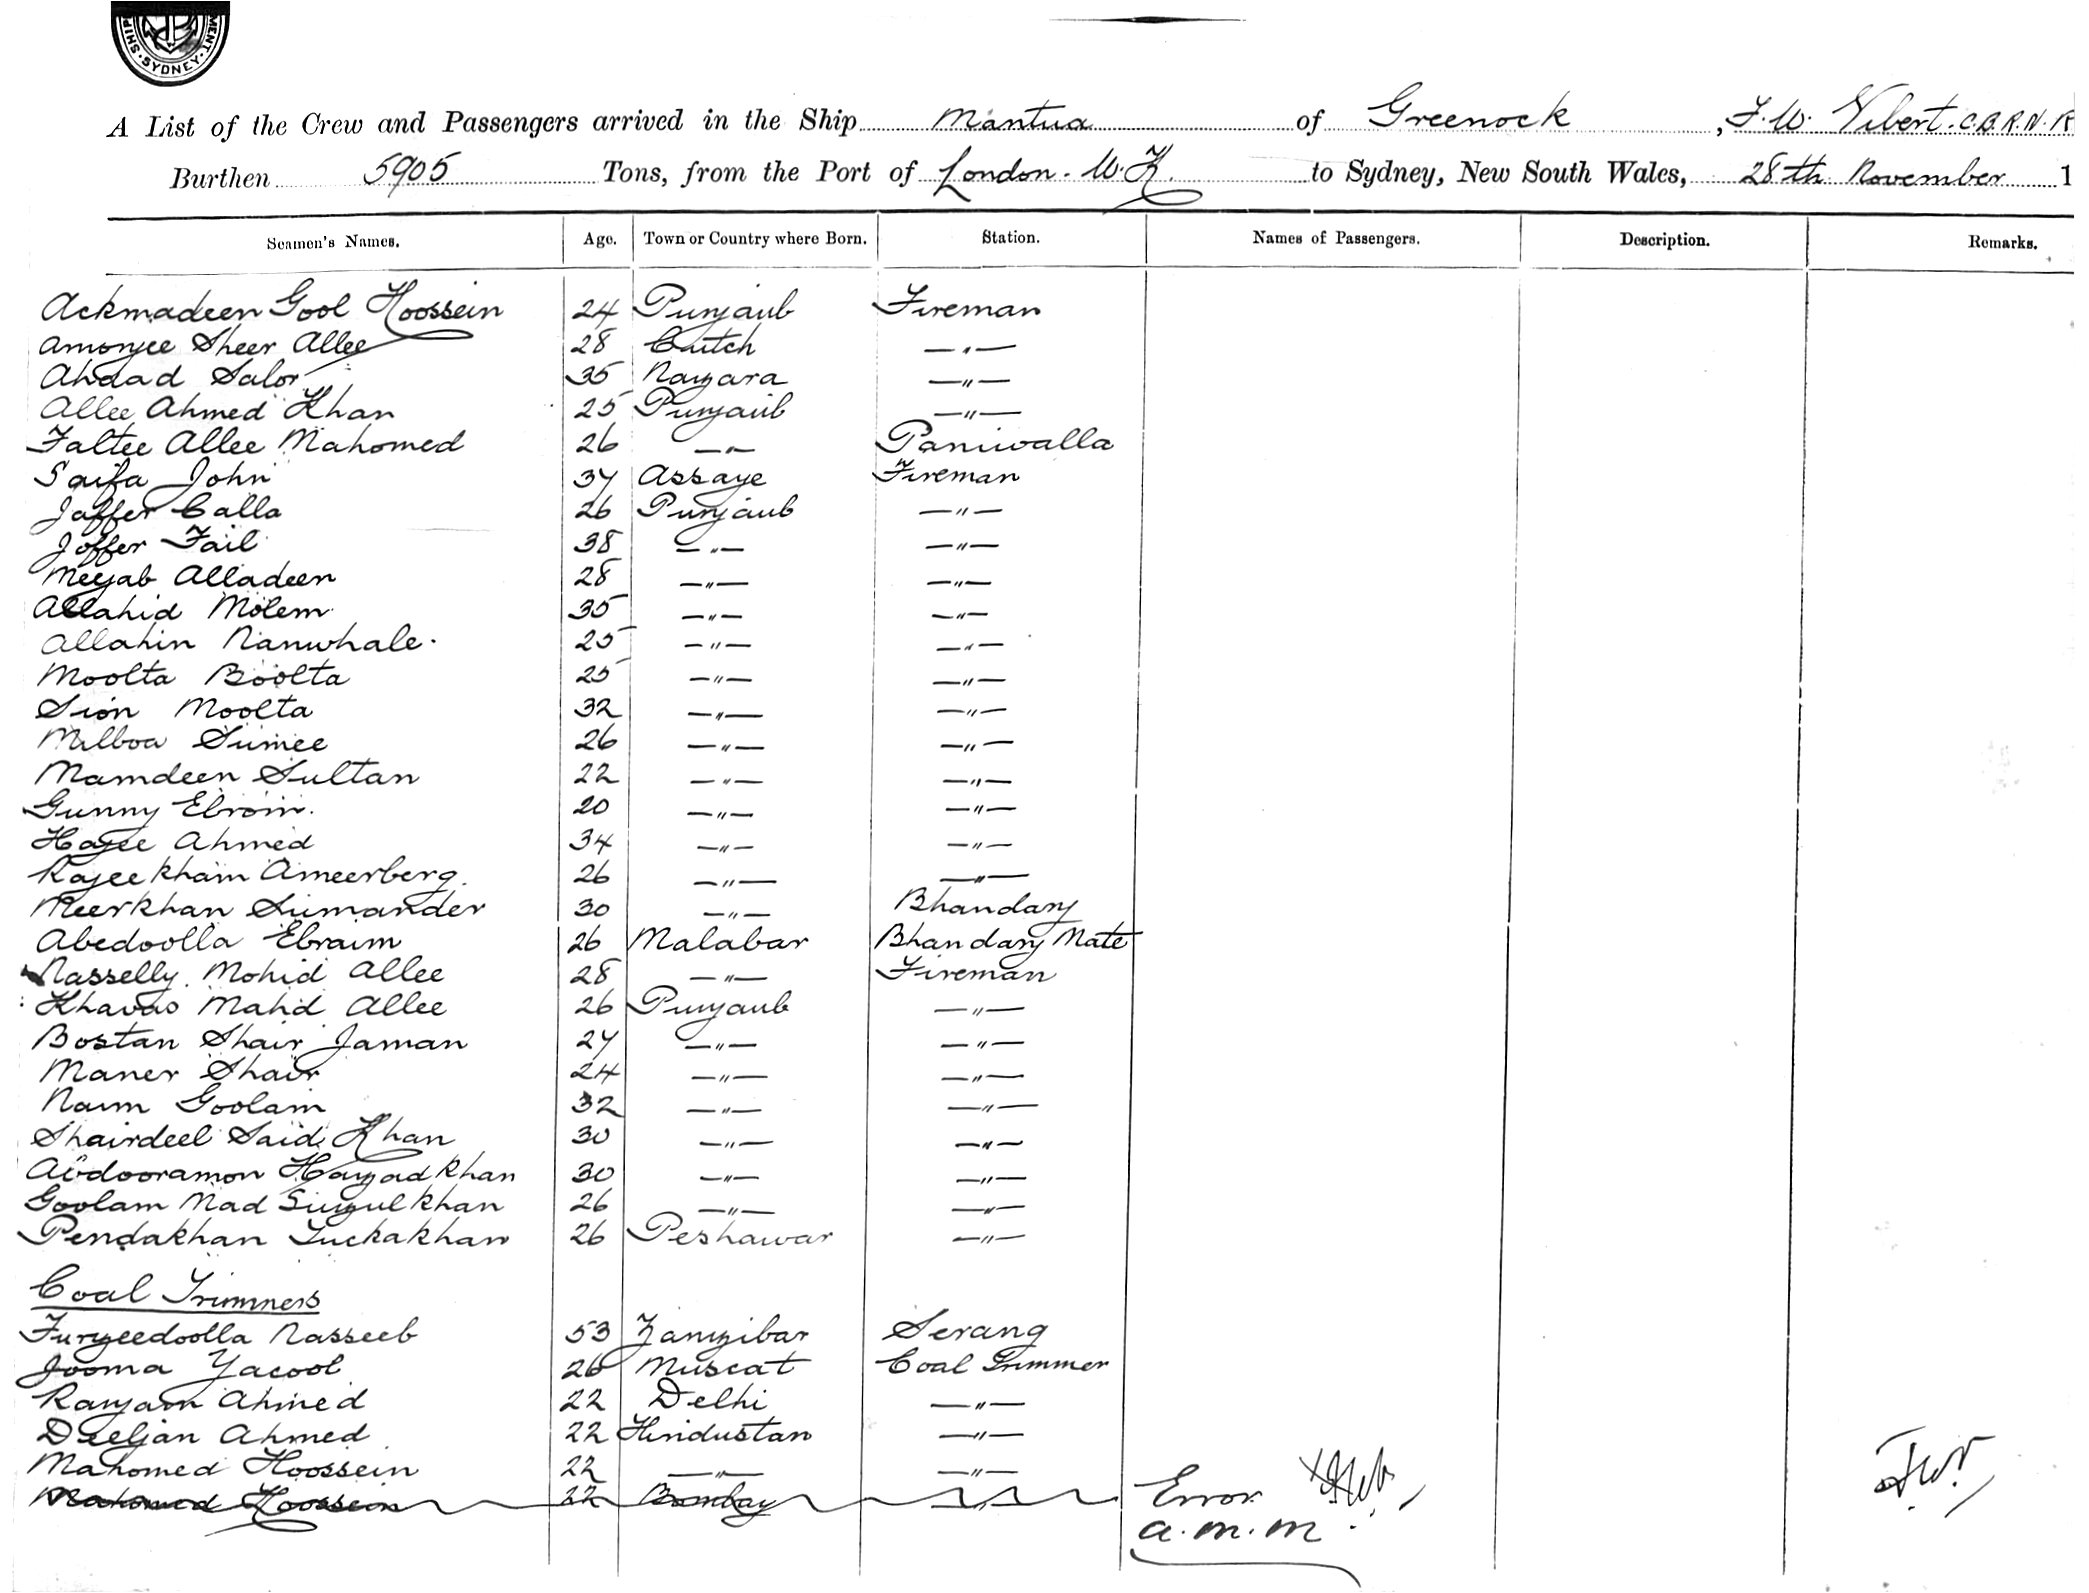 SHIP MENT · SYDNEY ·
A List of the Crew and Passengers arrived in the Ship Mantua of Greenock, F. W. Vibert. C.B. R.N.R
Burthen 5905 Tons, from the Port of London. to Sydney, New South Wales, 28th November 1
Seamen's Names. Age. Town or Country where Born. Station. Names of Passengers. Description. Remarks.
Ackmadeen Gool Hoossein 24 Punjaub Fireman
Amonjee Sheer Allee 28 Cutch — " —
Ahdad Salor 35 Nagara — " —
Allee Ahmed Khan 25 Punjaub — " —
Faltee Allee Mahomed 26 — " — Paniwalla
Saifa John 37 Assaye Fireman
Jaffer Calla 26 Punjaub — " —
Joffer Fail 38 — " — — " —
Meyab Alladeen 28 — " — — " —
Allahid Molem 35 — " — — " —
Allahin Nanwhale. 25 — " — — " —
Moolta Boolta 25 — " — — " —
Sion Moolta 32 — " — — " —
Milboa Sumee 26 — " — — " —
Mamdeen Sultan 22 — " — — " —
Gunny Ebroim. 20 — " — — " —
Hajee Ahmed 34 — " — — " —
Kajeekham Ameerberg. 26 — " — — " —
Meerkhan Sumander 30 — " — Bhandary
Abedoolla Ebraim 26 Malabar Bhandary Mate
Nasselly. Mohid Allee 28 — " — Fireman
Khavas Mahd Allee 26 Punjaub — " —
Bostan Shair Jaman 27 — " — — " —
Maner Shair 24 — " — — " —
Naim Goolam 32 — " — — " —
Shairdeel Said Khan 30 — " — — " —
Abdooramon Hayadkhan 30 — " — — " —
Goolam Mad Sugulkhan 26 — " — — " —
Pendakhan Luckakhan 26 Peshawar — " —
Coal Trimmers
Furjeedoolla Nasseeb 53 Zanzibar Serang
Jooma Yacool 26 Muscat Coal Trimmer
Ranjam Ahmed 22 Delhi — " —
Deeljan Ahmed 22 Hindustan — " —
Mahomed Hoossein 22 — " — — " —
Mahomed Hoossein 22 Bombay — " — Error
a.m.m